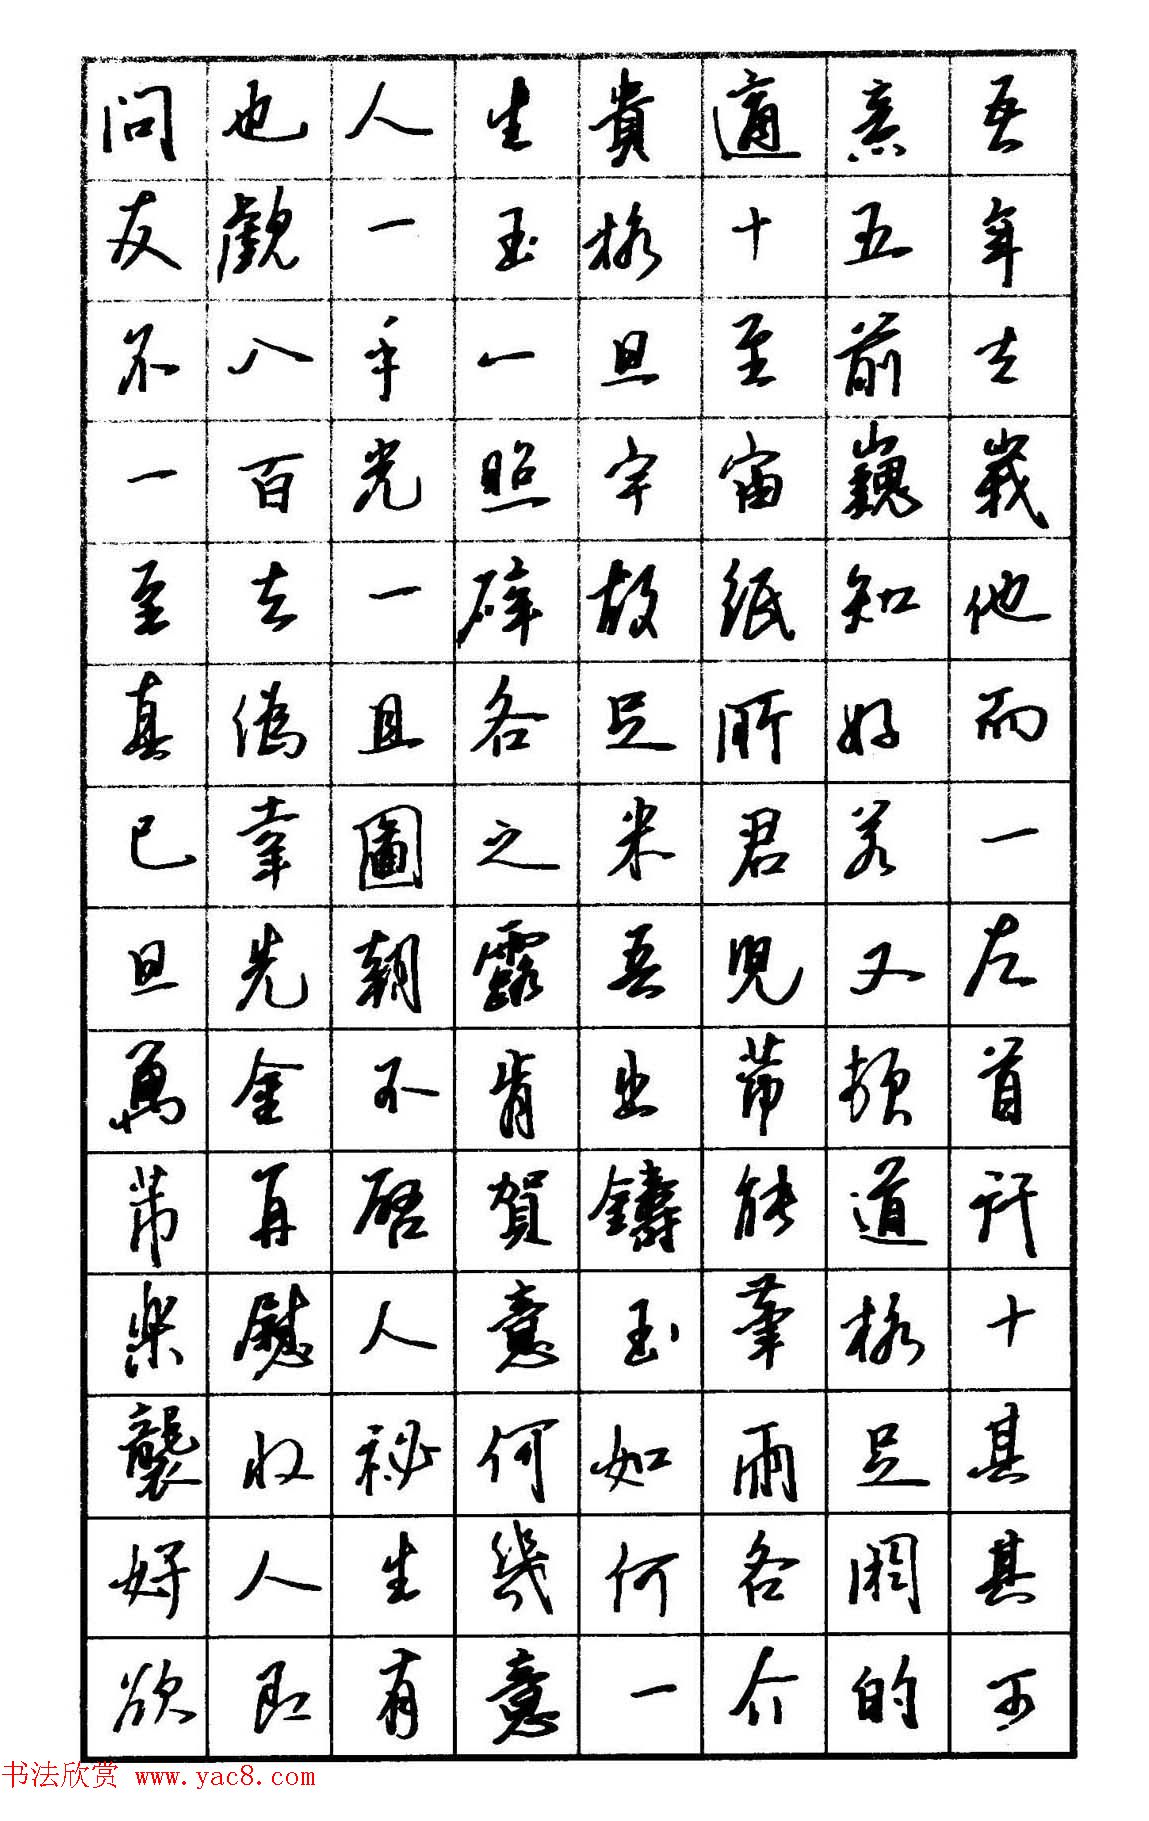 問也人生貴適意吾
友觀一玉格十五年
不入手一旦至前去
一百光照宇宙巍峩
至去一碎故紙知他
真偽且各足所好而
已幸圖之米君若一
旦先朝露吾兒又左
萬金不肯出芾頓首
芾再啓賀鑄能道許
樂慰人意玉筆格十
襲收祕何如兩足其
好人生幾何各閱其
欲即有意一介的可
书法欣赏 www.yac8.com